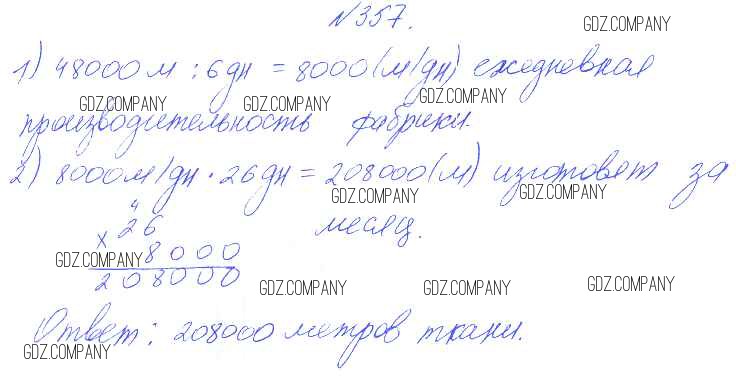 №357.
GDZ.COMPANY
1) 48000 м : 6 дн = 8000 (м/дн) ежедневная
GDZ.COMPANY GDZ.COMPANY GDZ.COMPANY
производительность фабрики.
2) 8000 м/дн · 26 дн = 208000 (м) изготовят за
GDZ.COMPANY GDZ.COMPANY
месяц.
4
× 26
8000
GDZ.COMPANY
208000
GDZ.COMPANY GDZ.COMPANY GDZ.COMPANY
Ответ: 208000 метров ткани.
GDZ.COMPANY